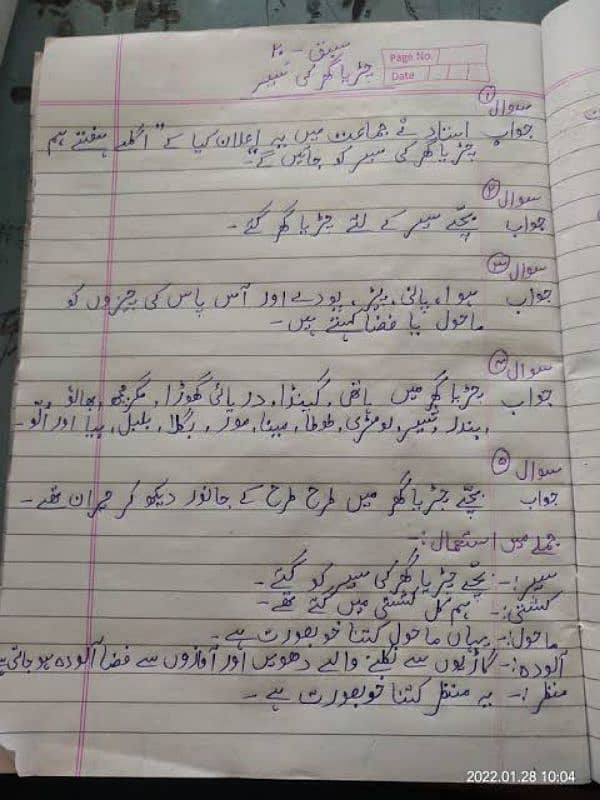 سبق - ۲۰
چڑیا گھر کی سیر
Page No.
Date
سوال ۱
جواب استاد نے جماعت میں یہ اعلان کیا کے " اگلے ہفتے ہم
چڑیا گھر کی سیر کو جائیں گے"۔
سوال ۲
جواب بچّے سیر کے لئے چڑیا گھر گئے -
سوال ۳
جواب ہوا، پانی، پیڑ، پودے اور آس پاس کی چیزوں کو
ماحول یا فضا کہتے ہیں -
سوال ۴
جواب چڑیا گھر میں ہاتھی، گینڈا، دریائی گھوڑا، مگرمچھ، بھالو
، بندر، شیر، لومڑی، طوطا، مینا، مور، بگلا، بلبل، بیا اور اُلّو -
سوال ۵
جواب بچّے چڑیا گھر میں طرح طرح کے جانور دیکھ کر حیران تھے -
جملے میں استعمال :-
سیر :- بچّے چڑیا گھر کی سیر کو گئے -
کشتی :- ہم کل کشتی میں گئے تھے -
ماحول :- یہاں ماحول کتنا خوبصورت ہے -
آلودہ :- گاڑیوں سے نکلنے والے دھویں اور آوازوں سے فضا آلودہ ہو جاتی ہے
منظر :- یہ منظر کتنا خوبصورت ہے -
2022.01.28 10:04